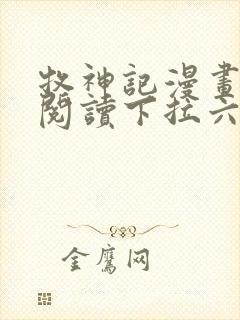 牧神記漫畫
閱讀下拉六
金鷹网